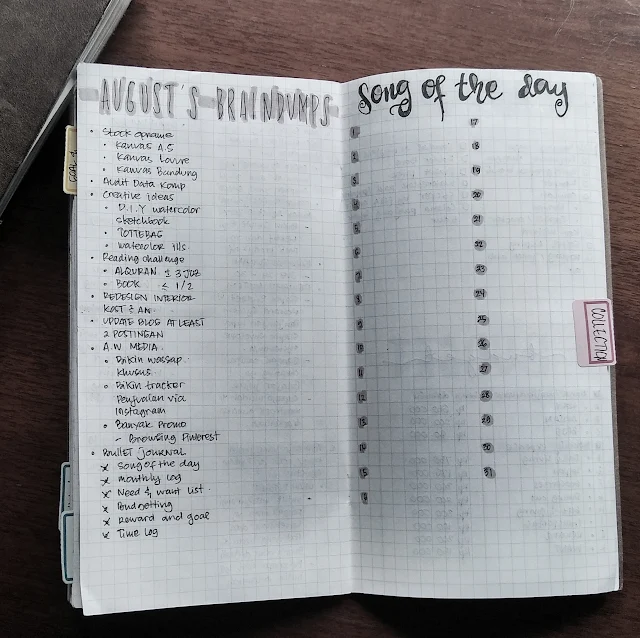 AUGUST'S BRAINDUMPS
• Stock opname
• Kanvas A5
• Kanvas Louvre
• Kanvas Bandung
• Audit Data Komp
• Creative ideas
• D.I.Y watercolor
sketchbook
• TOTTEBAG
• Watercolor ills.
• Reading challenge
• ALQURAN ± 3 JUZ
• BOOK ≤ 1/2
• REDESIGN INTERIOR
KOST
• UPDATE BLOG AT LEAST
2 POSTINGAN
• A.W MEDIA
• Bikin wassap
khusus
• Bikin tracker
Penjualan via
Instagram
• Banyak Promo
- Browsing Pinterest
• Bullet Journal
× Song of the day
× monthly log
× Need & want list
× Budgetting
× Reward and goal
× Time log
Song of the day
1
2
3
4
5
6
7
8
9
10
11
12
13
14
15
16
17
18
19
20
21
22
23
24
25
26
27
28
29
30
31
COLLECTION